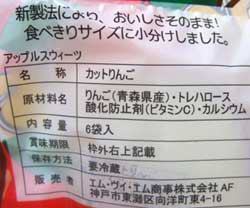 新製法により、おいしさそのまま!
食べきりサイズに小分けしました。
アップルスウィーツ
名称 カットりんご
原材料名 りんご(青森県産)・トレハロース
酸化防止剤(ビタミンC)・カルシウム
内容量 6袋入
賞味期限 枠外右上記載
保存方法 要冷蔵
販売者 エム・ヴイ・エム商事株式会社AF
神戸市東灘区向洋町東4-16